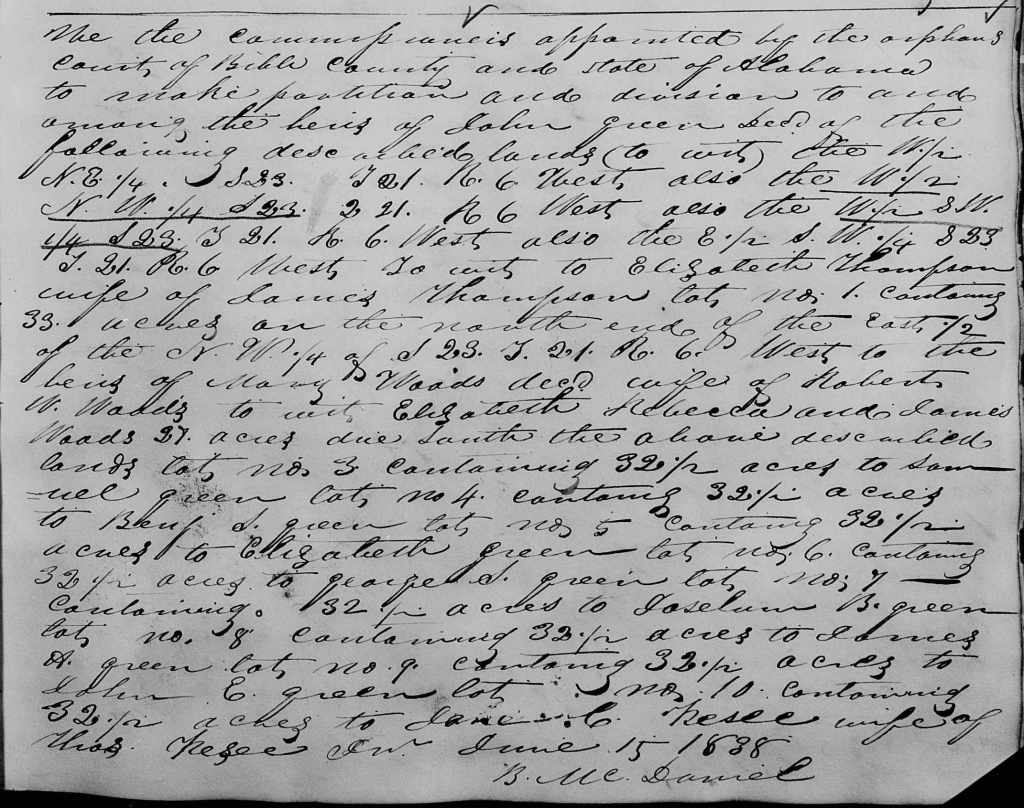 We the commissioners appointed by the orphans
court of Bibb County and State of Alabama
to make partition and division to and
among the heirs of John green Decd of the
following described lands (to wit) the W. 1/2
N.E. 1/4. S 23. T 21. R. 6 West also the W. 1/2
N. W. 1/4 S 23. 2 21. R 6 West also the W. 1/2 S W.
1/4 S 23. T 21. R. 6. West also the E. 1/2 S. W. 1/4 S 23
T. 21. R. 6 West To wit to Elizabeth Thompson
wife of James Thompson lot, no. 1. containg
33. acres on the north end of the East 1/2
of the N. W. 1/4 of S 23. T. 21. R. 6. West to the
heirs of Mary Woods decd wife of Robert
W. Woods to wit Elizabeth Rebecca and James
Woods 27. acres due South the above described
lands lot, no. 3 containing 32 1/2 acres to Sam
-uel green lot, no 4. containg 32 1/2 acres
to Benj S. green lot, no. 5 containg 32 1/2
acres to Elizabeth green lot, no. 6. containg
32 1/2 acres to george S. green lot, no. 7
containing. 32 1/2 acres to B. green
lot, no. 8 containing 32 1/2 acres to James
A. green lot no. 9. containg 32 1/2 acres to
John E. green lot no. 10. containing
32 1/2 acres to Jane C. Kesee wife of
Thos. Kesee Jr. June 15 1838
B. Mc. Daniel